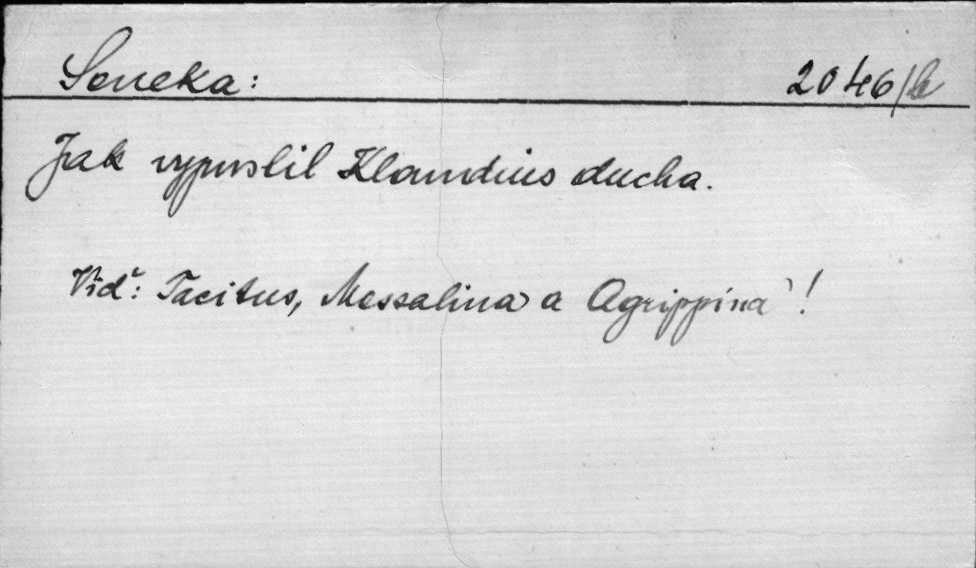 Seneka: 2046/b
Jak vypustil Klaudius ducha.
Viď: Tacitus, Messalina a Agrippina!